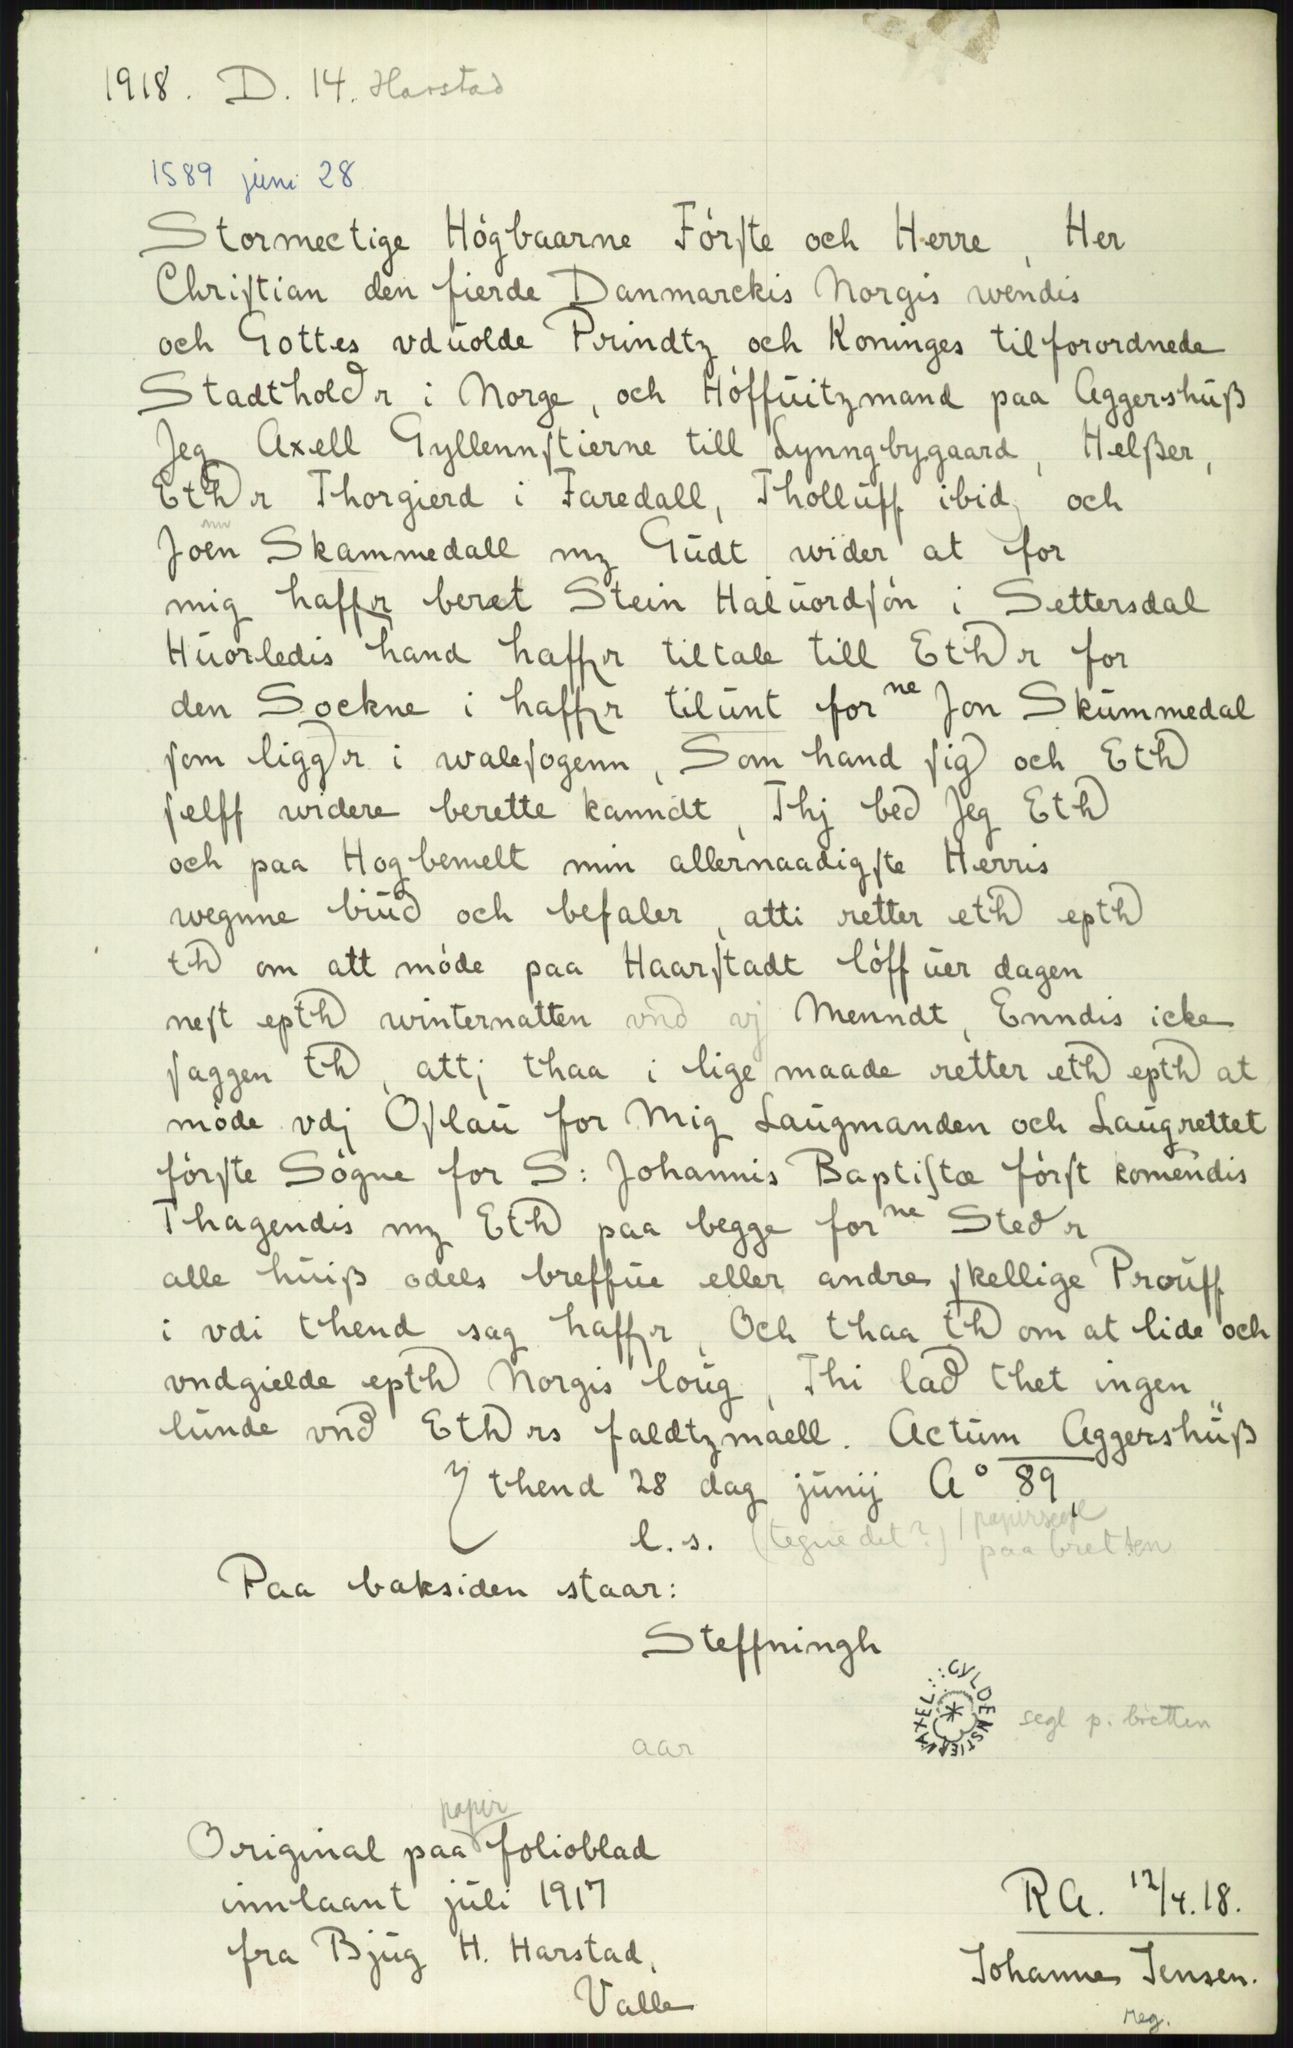 1918. D. 14. Harstad
1589 juni 28
Stormectige Högbaarne Förste och Herre, Her
Christian den fierde Danmarckis Norgis wendis
och Gottes vduolde Prindtz och Koninges tilforordnede
Stadtholdr i Norge, och Höffuitzmand paa Aggershuß
Jeg Axell Gyllennstierne till Lynngbygaard, Helßer,
Ethr Thorgierd i Faredall, Tholluff ibid, och
Joen Skammedall mz Gudt wider at for
mig haffr beret Stein Haluordsön i Settersdal
Huorledis hand haffr tiltale till Ethr for
den Sockne i haffr tilunt for ne Jon Skummedal
som liggr i walesogenn, Som hand sig och Eth
selff widere berette kanndt, Thj bed Jeg Eth
och paa Hogbemelt min allernaadigste Herris
wegnne biud och befaler, atti retter eth epth
th om att möde paa Haarstadt löffuer dagen
nest epth winternatten vnd vj Menndt, Enndis icke
saggen th, attj thaa i lige maade retter eth epth at
möde vdj Oslau for Mig Laugmanden och Laugrettet
förste Sögne for S: Johannis Baptistæ först komendis
Thagendis mz Eth paa begge for ne Stedr
alle huiß odels breffue eller andre skellige Prouff
i vdi thend sag haffr, Och thaa th om at lide och
vndgielde epth Norgis loug, Thi lad thet ingen
lunde vnd Ethrs faldtzmaell. Actum Aggershuß
thend 28 dag junij A° 89
l. s. (tegne det?) / papirsegl
paa bretten
Paa baksiden staar:
Steffningh
AXEL GYLDENSTIERN
segl p. bretten
aar
papir
Original paa folioblad
innlaant juli 1917
fra Bjug H. Harstad,
Valle
RA. 12/4.18.
Johanne Jensen.
reg.